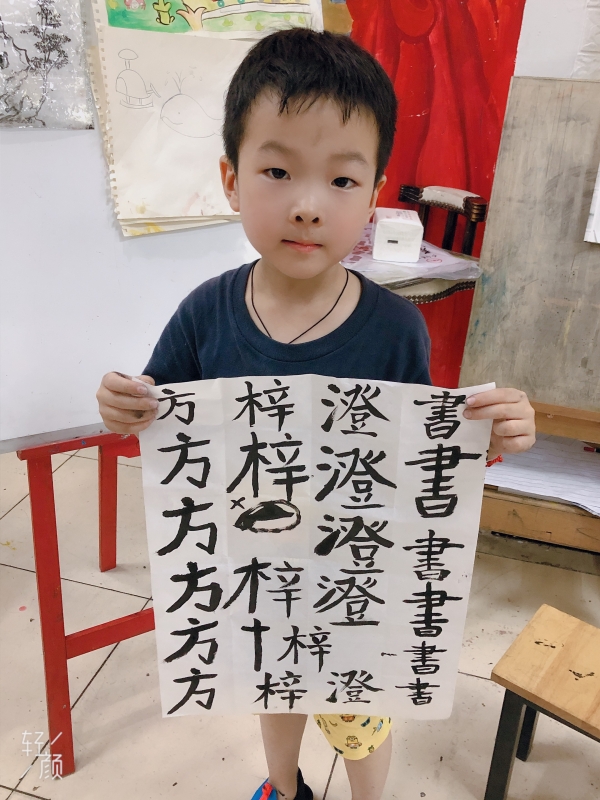 方方方方方方
梓梓×梓十梓梓
澄澄澄澄澄
書書書書書書
轻颜